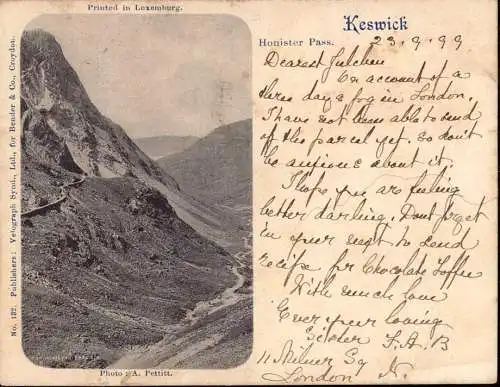 Printed in Luxemburg.
No. 132. Publishers: Velograph Synd., Ltd., for Bender & Co., Croydon.
Photo: A. Pettitt.
Keswick
Honister Pass.
23.9.99
Dearest
On account of a
three day's fog in London,
I have not been able to send
of the parcel yet. So don't
be anxious about it.
I hope you are feeling
better darling. Dont forget
in your next to send
recipe for Chocolate Toffee
With much love
Ever your loving
Sister F.A.B
11 Milner Sq
London N.